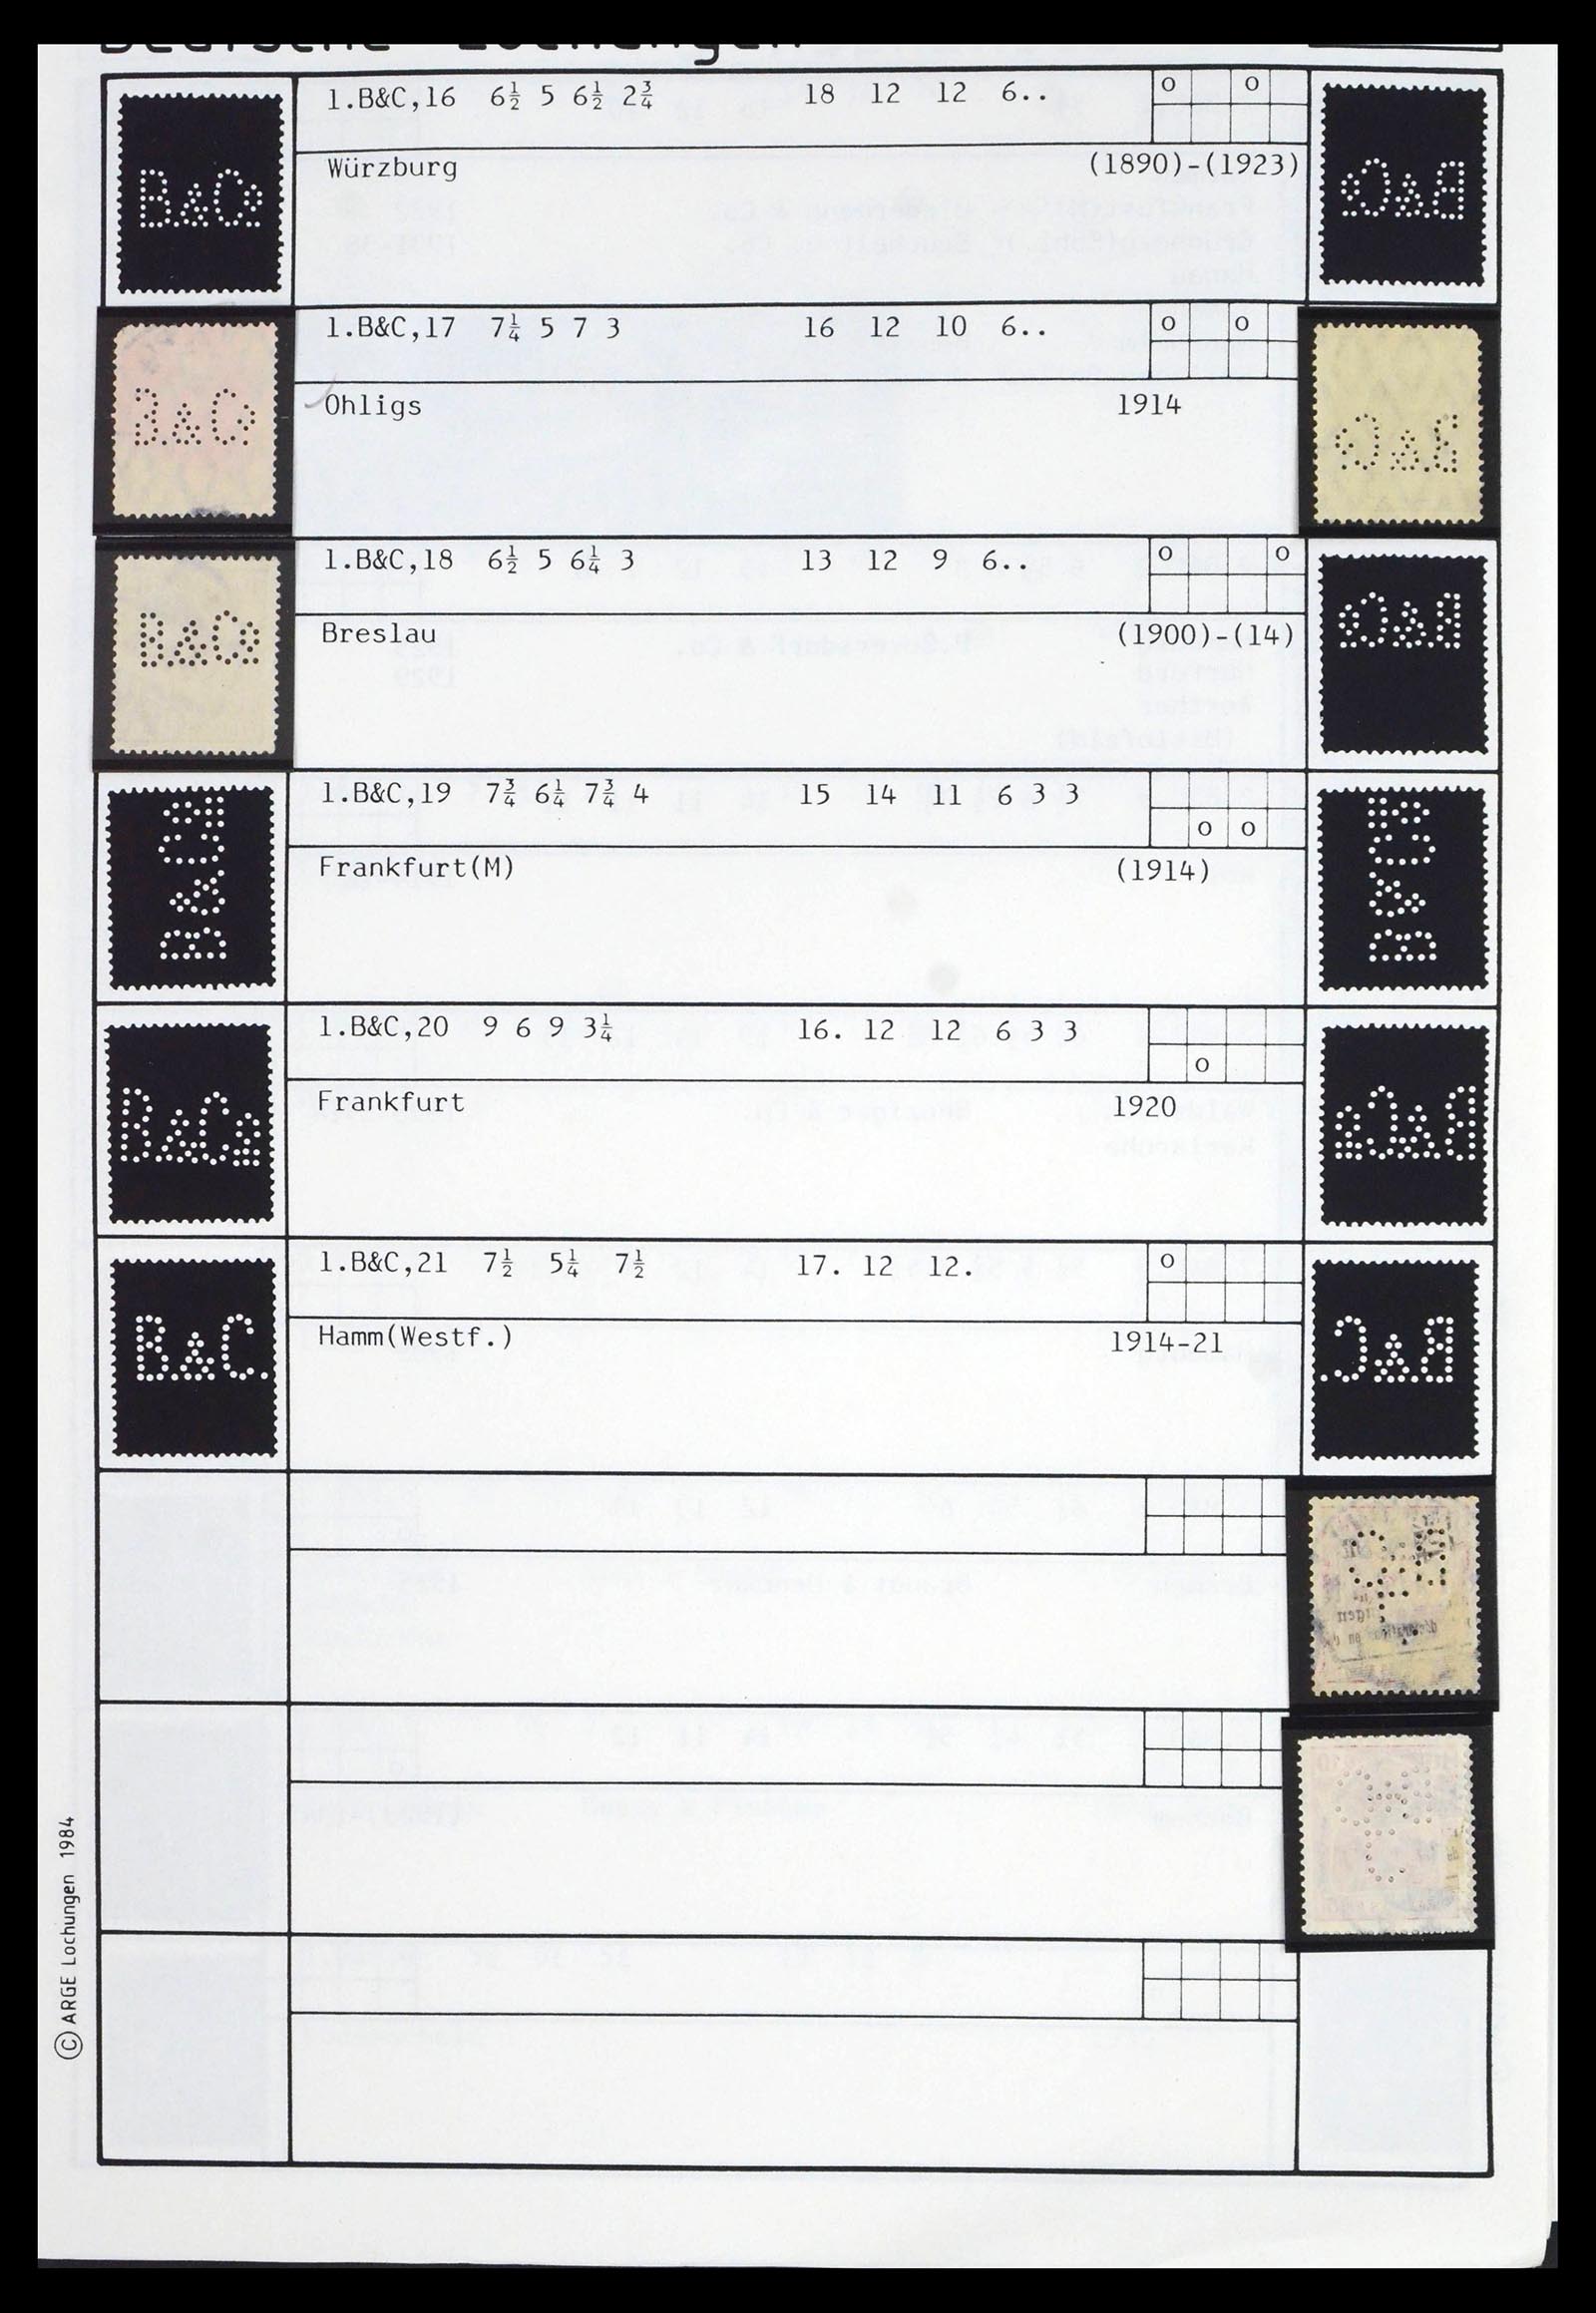 Deutsche Lochungen
B&Co
1.B&C,16 6½ 5 6½ 2¾ 18 12 12 6.. o o
Würzburg (1890)-(1923)
B&Co
1.B&C,17 7¼ 5 7 3 16 12 10 6.. o o
Ohligs 1914
B&Co
1.B&C,18 6½ 5 6¼ 3 13 12 9 6.. o o
Breslau (1900)-(14)
B&Co
1.B&C,19 7¾ 6¼ 7¾ 4 15 14 11 6 3 3 o o
Frankfurt(M) (1914)
B&Co
1.B&C,20 9 6 9 3¼ 16. 12 12 6 3 3 o
Frankfurt 1920
B&C.
1.B&C,21 7½ 5¼ 7½ 17. 12 12. o
Hamm(Westf.) 1914-21
© ARGE Lochungen 1984